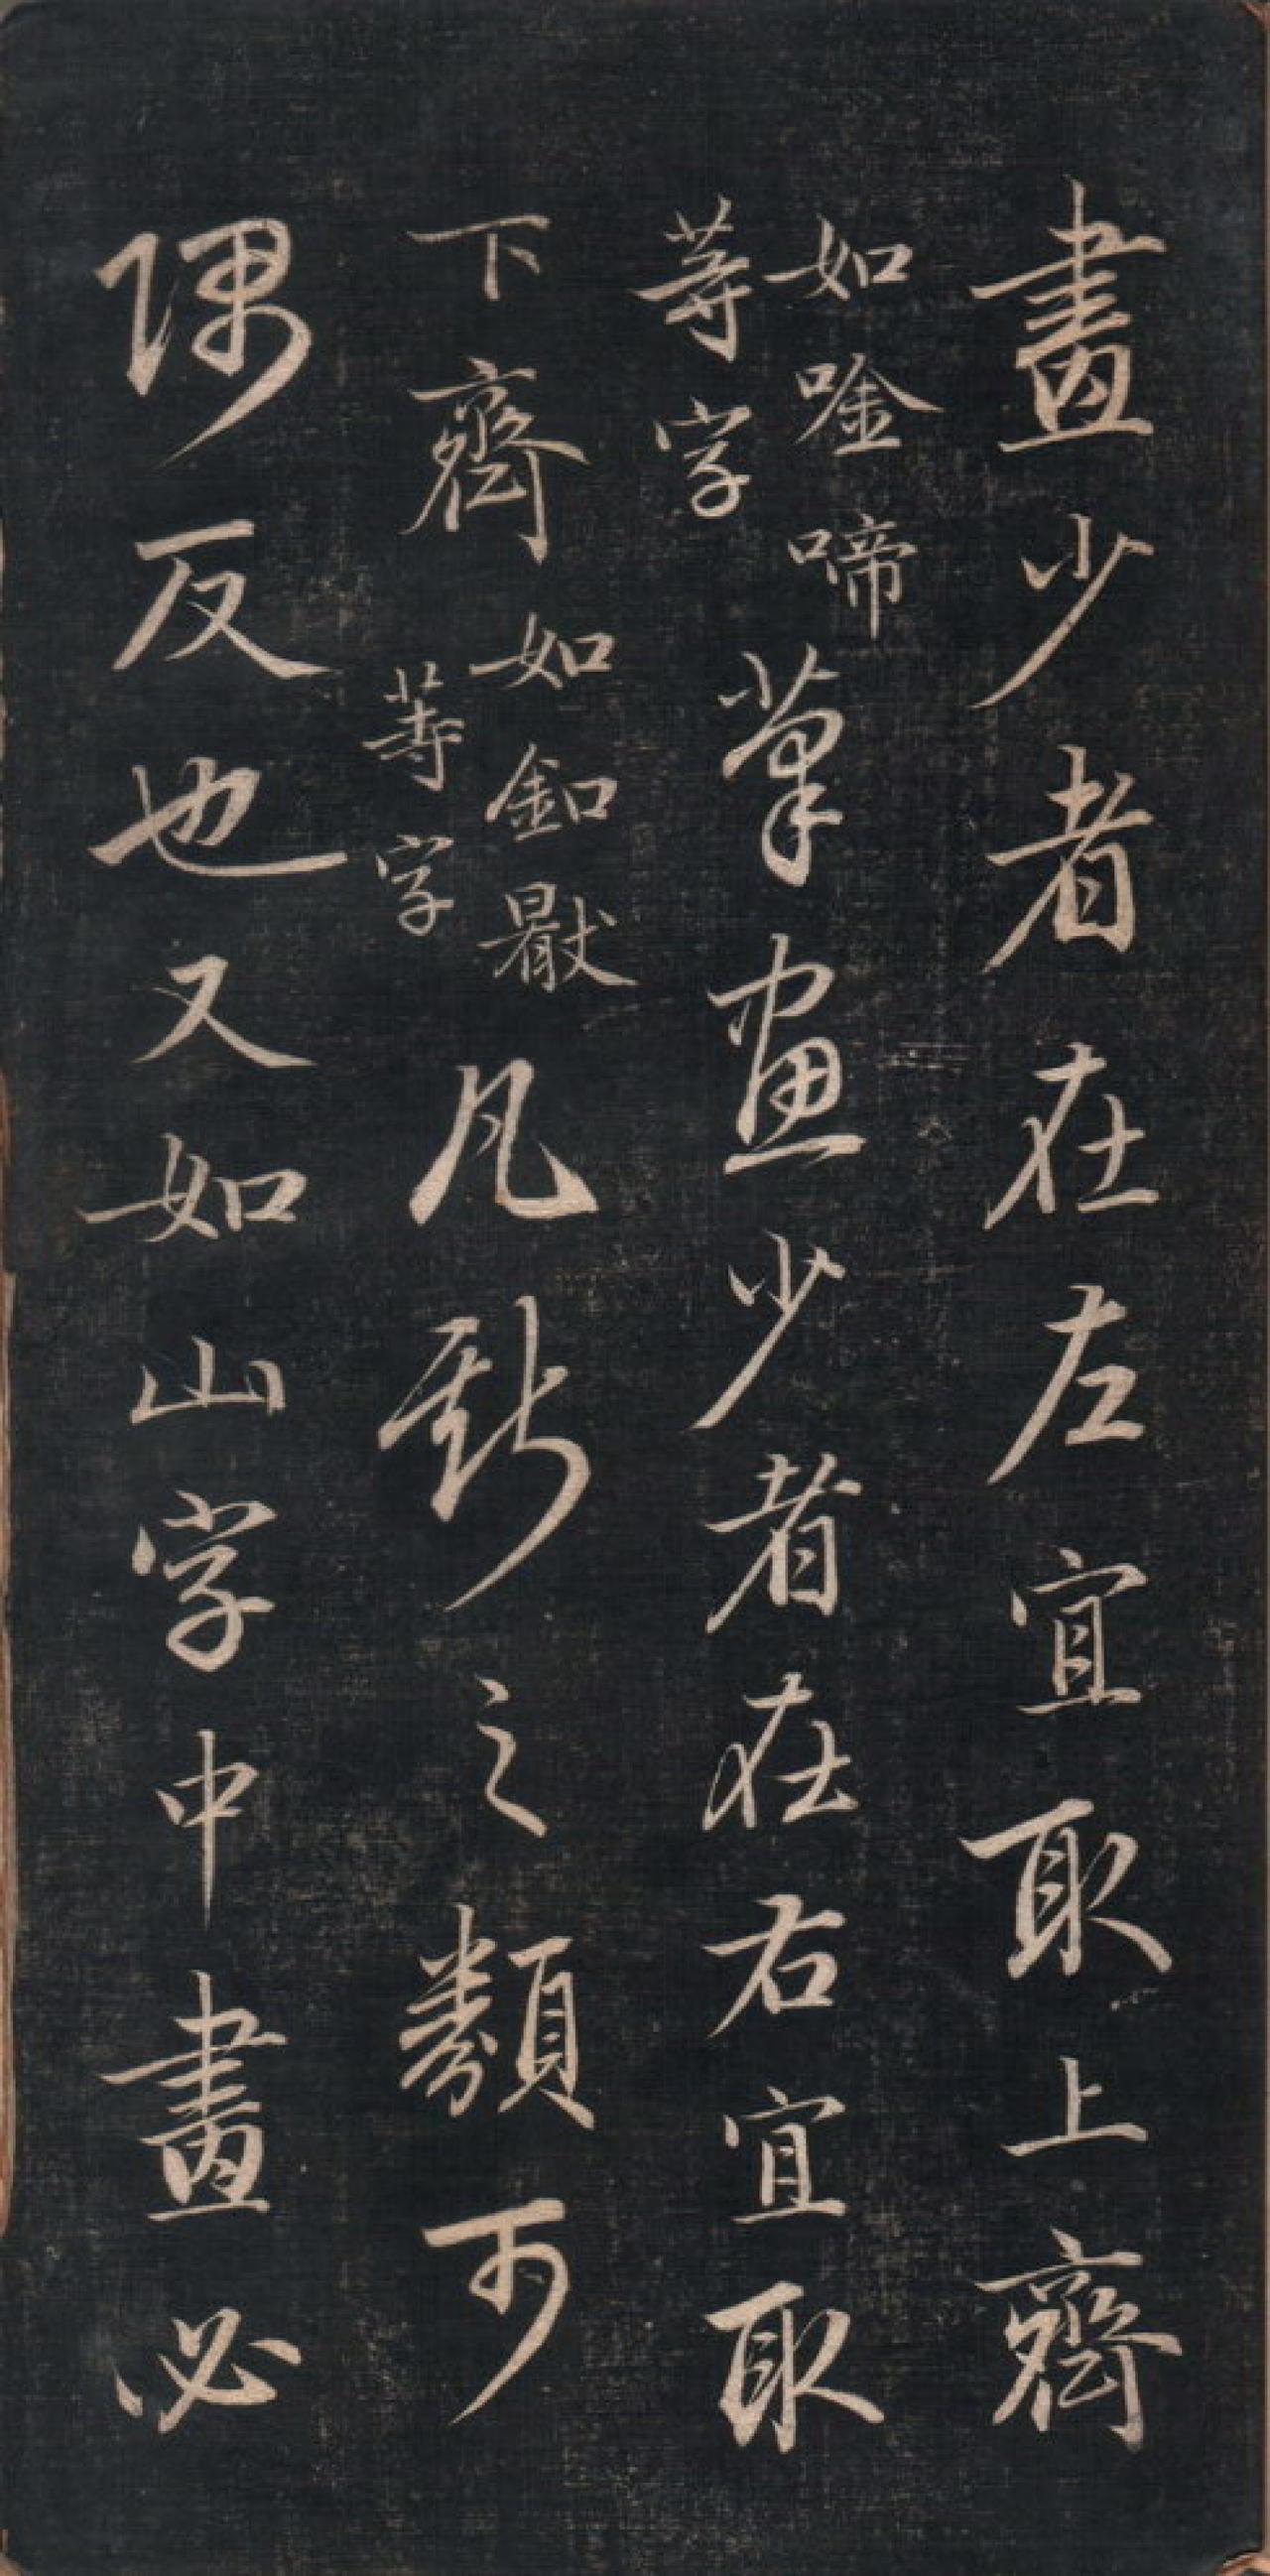 畫少者在左宜取上齊
如唫啼
等字
筆畫少者在右宜取
下齊
如釦猒
等字
凡斯之類可
隅反也又如山字中畫必